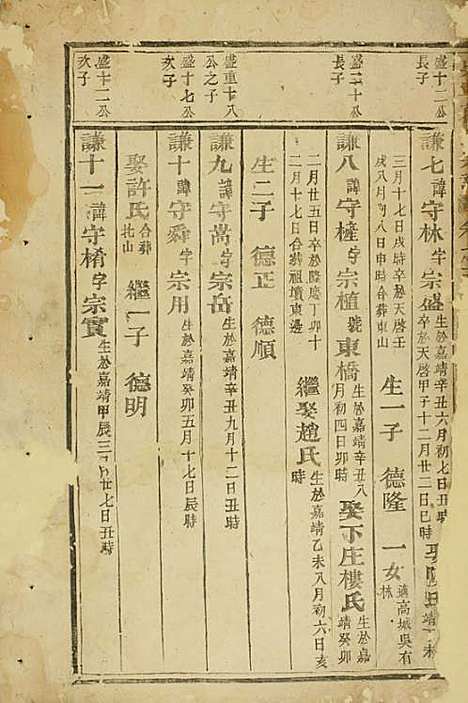 盛十二公長子
謙七諱守林字宗盛生於嘉靖辛丑六月初七日丑時卒於天啓甲子十二月廿二日巳時
三月十七日戌時卒於天啓壬戌八月初八日申時合葬東山 生一子 德隆 一女適高城吳有林
盛二十公長子
謙八諱守橦字宗植號東橋生於嘉靖辛丑八月初四日卯時 娶下庄樓氏生於嘉靖癸卯
二月廿五日卒於隆慶丁卯十二月十七日合葬祖墳東邊 繼娶趙氏生於嘉靖乙未八月初六日亥時
生二子 德正 德順
盛重十八公之子
謙九諱守嵩字宗岳生於嘉靖辛丑九月十二日丑時
盛十七公次子
謙十諱守舜字宗用生於嘉靖癸卯五月十七日辰時
娶許氏合葬北山 繼一子 德明
盛十二公次子
謙十一諱守楕字宗實生於嘉靖甲辰三月廿七日丑時